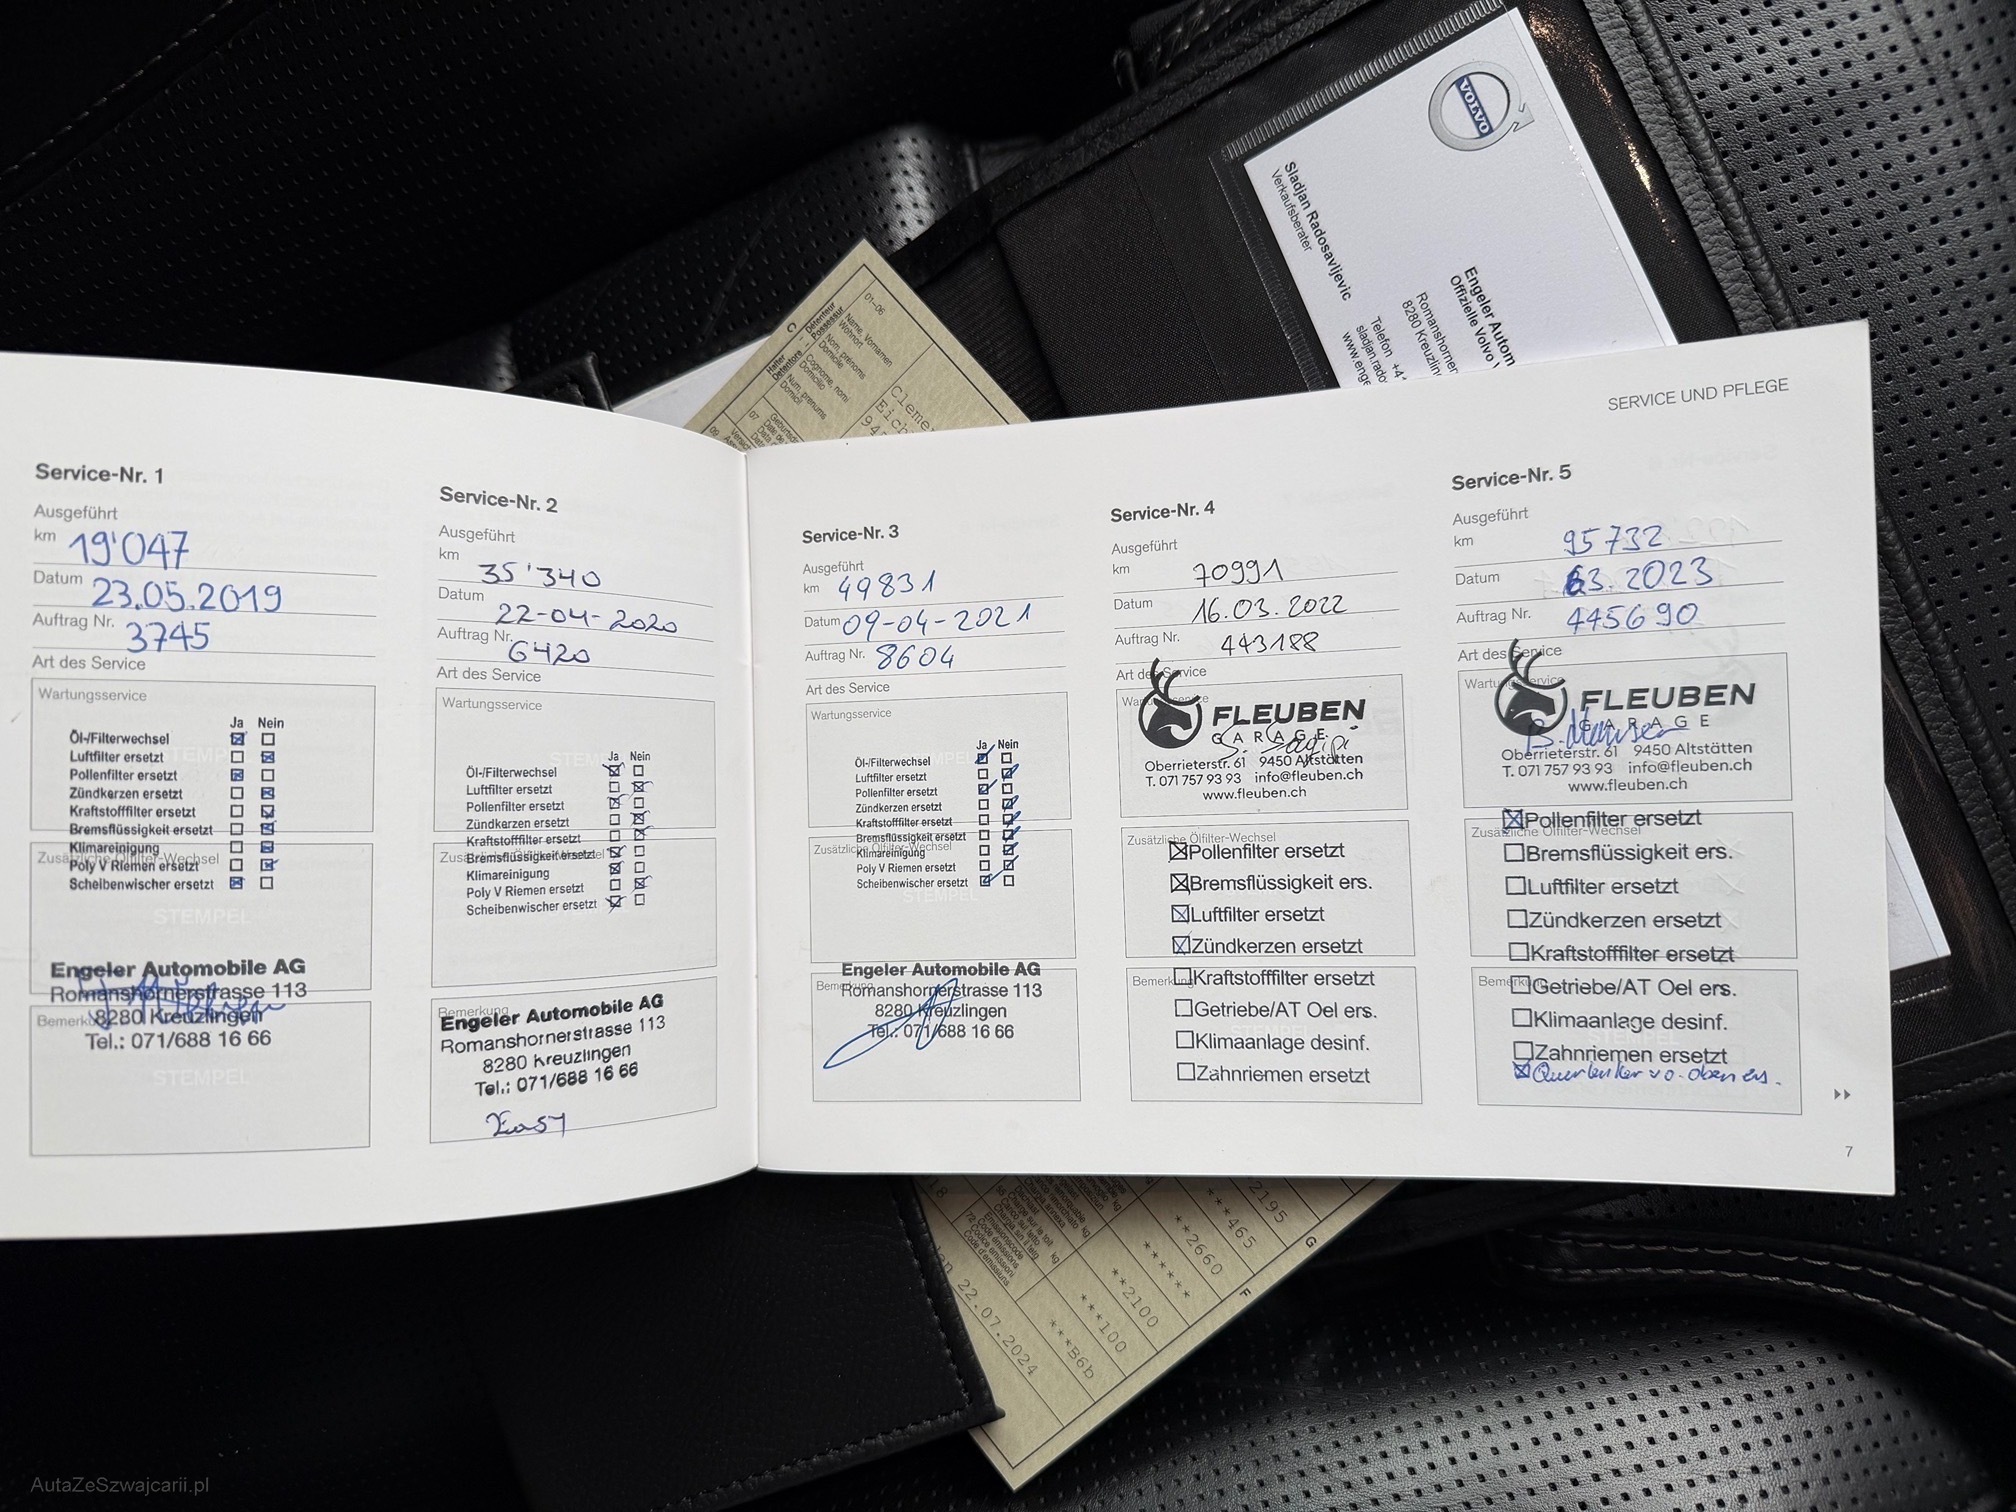 VOLVO
Sladjan Radosavljevic
Verkaufsberater
Engeler Autom
Offizielle Volvo V
Romanshorner
8280 Kreuzling
Telefon +4
sladjan.rado
www.enge
C
01-06
Name, Vornamen
Wohnort
Nom, prénoms
Domicile
Cognome, nomi
Domicilio
Num, prenums
Domicil
Détenteur
Possessur
Halter
Detentore
07
09
Cleme
Eich
SERVICE UND PFLEGE
Service-Nr. 1
Ausgeführt
km 19'047
Datum 23.05.2019
Auftrag Nr. 3745
Art des Service
Wartungsservice
Ja Nein
Öl-/Filterwechsel
Luftfilter ersetzt
Pollenfilter ersetzt
Zündkerzen ersetzt
Kraftstofffilter ersetzt
Bremsflüssigkeit ersetzt
Klimareinigung
Zusätzliche Ölfilter-Wechsel
Poly V Riemen ersetzt
Scheibenwischer ersetzt
STEMPEL
Engeler Automobile AG
Romanshornerstrasse 113
8280 Kreuzlingen
Tel.: 071/688 16 66
STEMPEL
Service-Nr. 2
Ausgeführt
km 35'340
Datum 22-04-2020
Auftrag Nr. 6420
Art des Service
Wartungsservice
STEMPEL
Ja Nein
Öl-/Filterwechsel
Luftfilter ersetzt
Pollenfilter ersetzt
Zündkerzen ersetzt
Kraftstofffilter ersetzt
Bremsflüssigkeit ersetzt
Klimareinigung
Poly V Riemen ersetzt
Scheibenwischer ersetzt
Bemerkung
Engeler Automobile AG
Romanshornerstrasse 113
8280 Kreuzlingen
Tel.: 071/688 16 66
Service-Nr. 3
Ausgeführt
km 49831
Datum 09-04-2021
Auftrag Nr. 8604
Art des Service
Wartungsservice
Ja Nein
Öl-/Filterwechsel
Luftfilter ersetzt
Pollenfilter ersetzt
Zündkerzen ersetzt
Kraftstofffilter ersetzt
Bremsflüssigkeit ersetzt
Zusätzliche Ölfilter-Wechsel
Klimareinigung
Poly V Riemen ersetzt
Scheibenwischer ersetzt
STEMPEL
Engeler Automobile AG
Bemerkung
Romanshornerstrasse 113
8280 Kreuzlingen
Tel.: 071/688 16 66
Service-Nr. 4
Ausgeführt
km 70991
Datum 16.03.2022
Auftrag Nr. 443188
Art des Service
Wartungsservice
FLEUBEN
GARAGE
Oberrieterstr. 61 9450 Altstätten
T. 071 757 93 93 info@fleuben.ch
www.fleuben.ch
Zusätzliche Ölfilter-Wechsel
Pollenfilter ersetzt
Bremsflüssigkeit ers.
Luftfilter ersetzt
Zündkerzen ersetzt
Bemerkung
Kraftstofffilter ersetzt
Getriebe/AT Oel ers.
Klimaanlage desinf.
Zahnriemen ersetzt
Service-Nr. 5
Ausgeführt
km 95732
Datum 63.2023
Auftrag Nr. 445690
Art des Service
Wartungsservice
FLEUBEN
GARAGE
Oberrieterstr. 61 9450 Altstätten
T. 071 757 93 93 info@fleuben.ch
www.fleuben.ch
Pollenfilter ersetzt
Zusätzliche Ölfilter-Wechsel
Bremsflüssigkeit ers.
Luftfilter ersetzt
Zündkerzen ersetzt
Kraftstofffilter ersetzt
Bemerkung
Getriebe/AT Oel ers.
Klimaanlage desinf.
Zahnriemen ersetzt
Querlenker vo. oben ers.
7
**2195
***465
**2660
******
**2100
***100
***B6b
G
F
22.07.2024
AutaZeSzwajcarii.pl